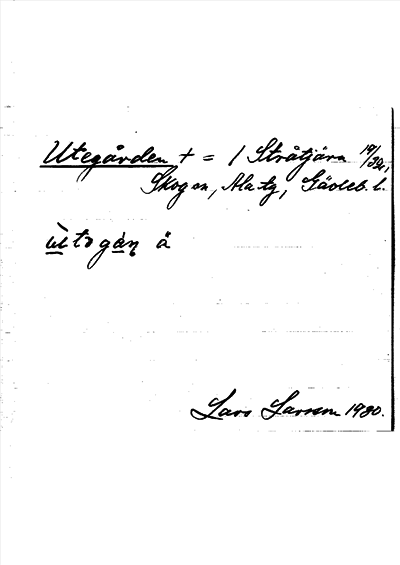 Utegården + = / Stråtjära 19/32,
Skogen, Ala tg, Gävleb. l.
ùtəgáɳ ä
Lars Larsson 1980.